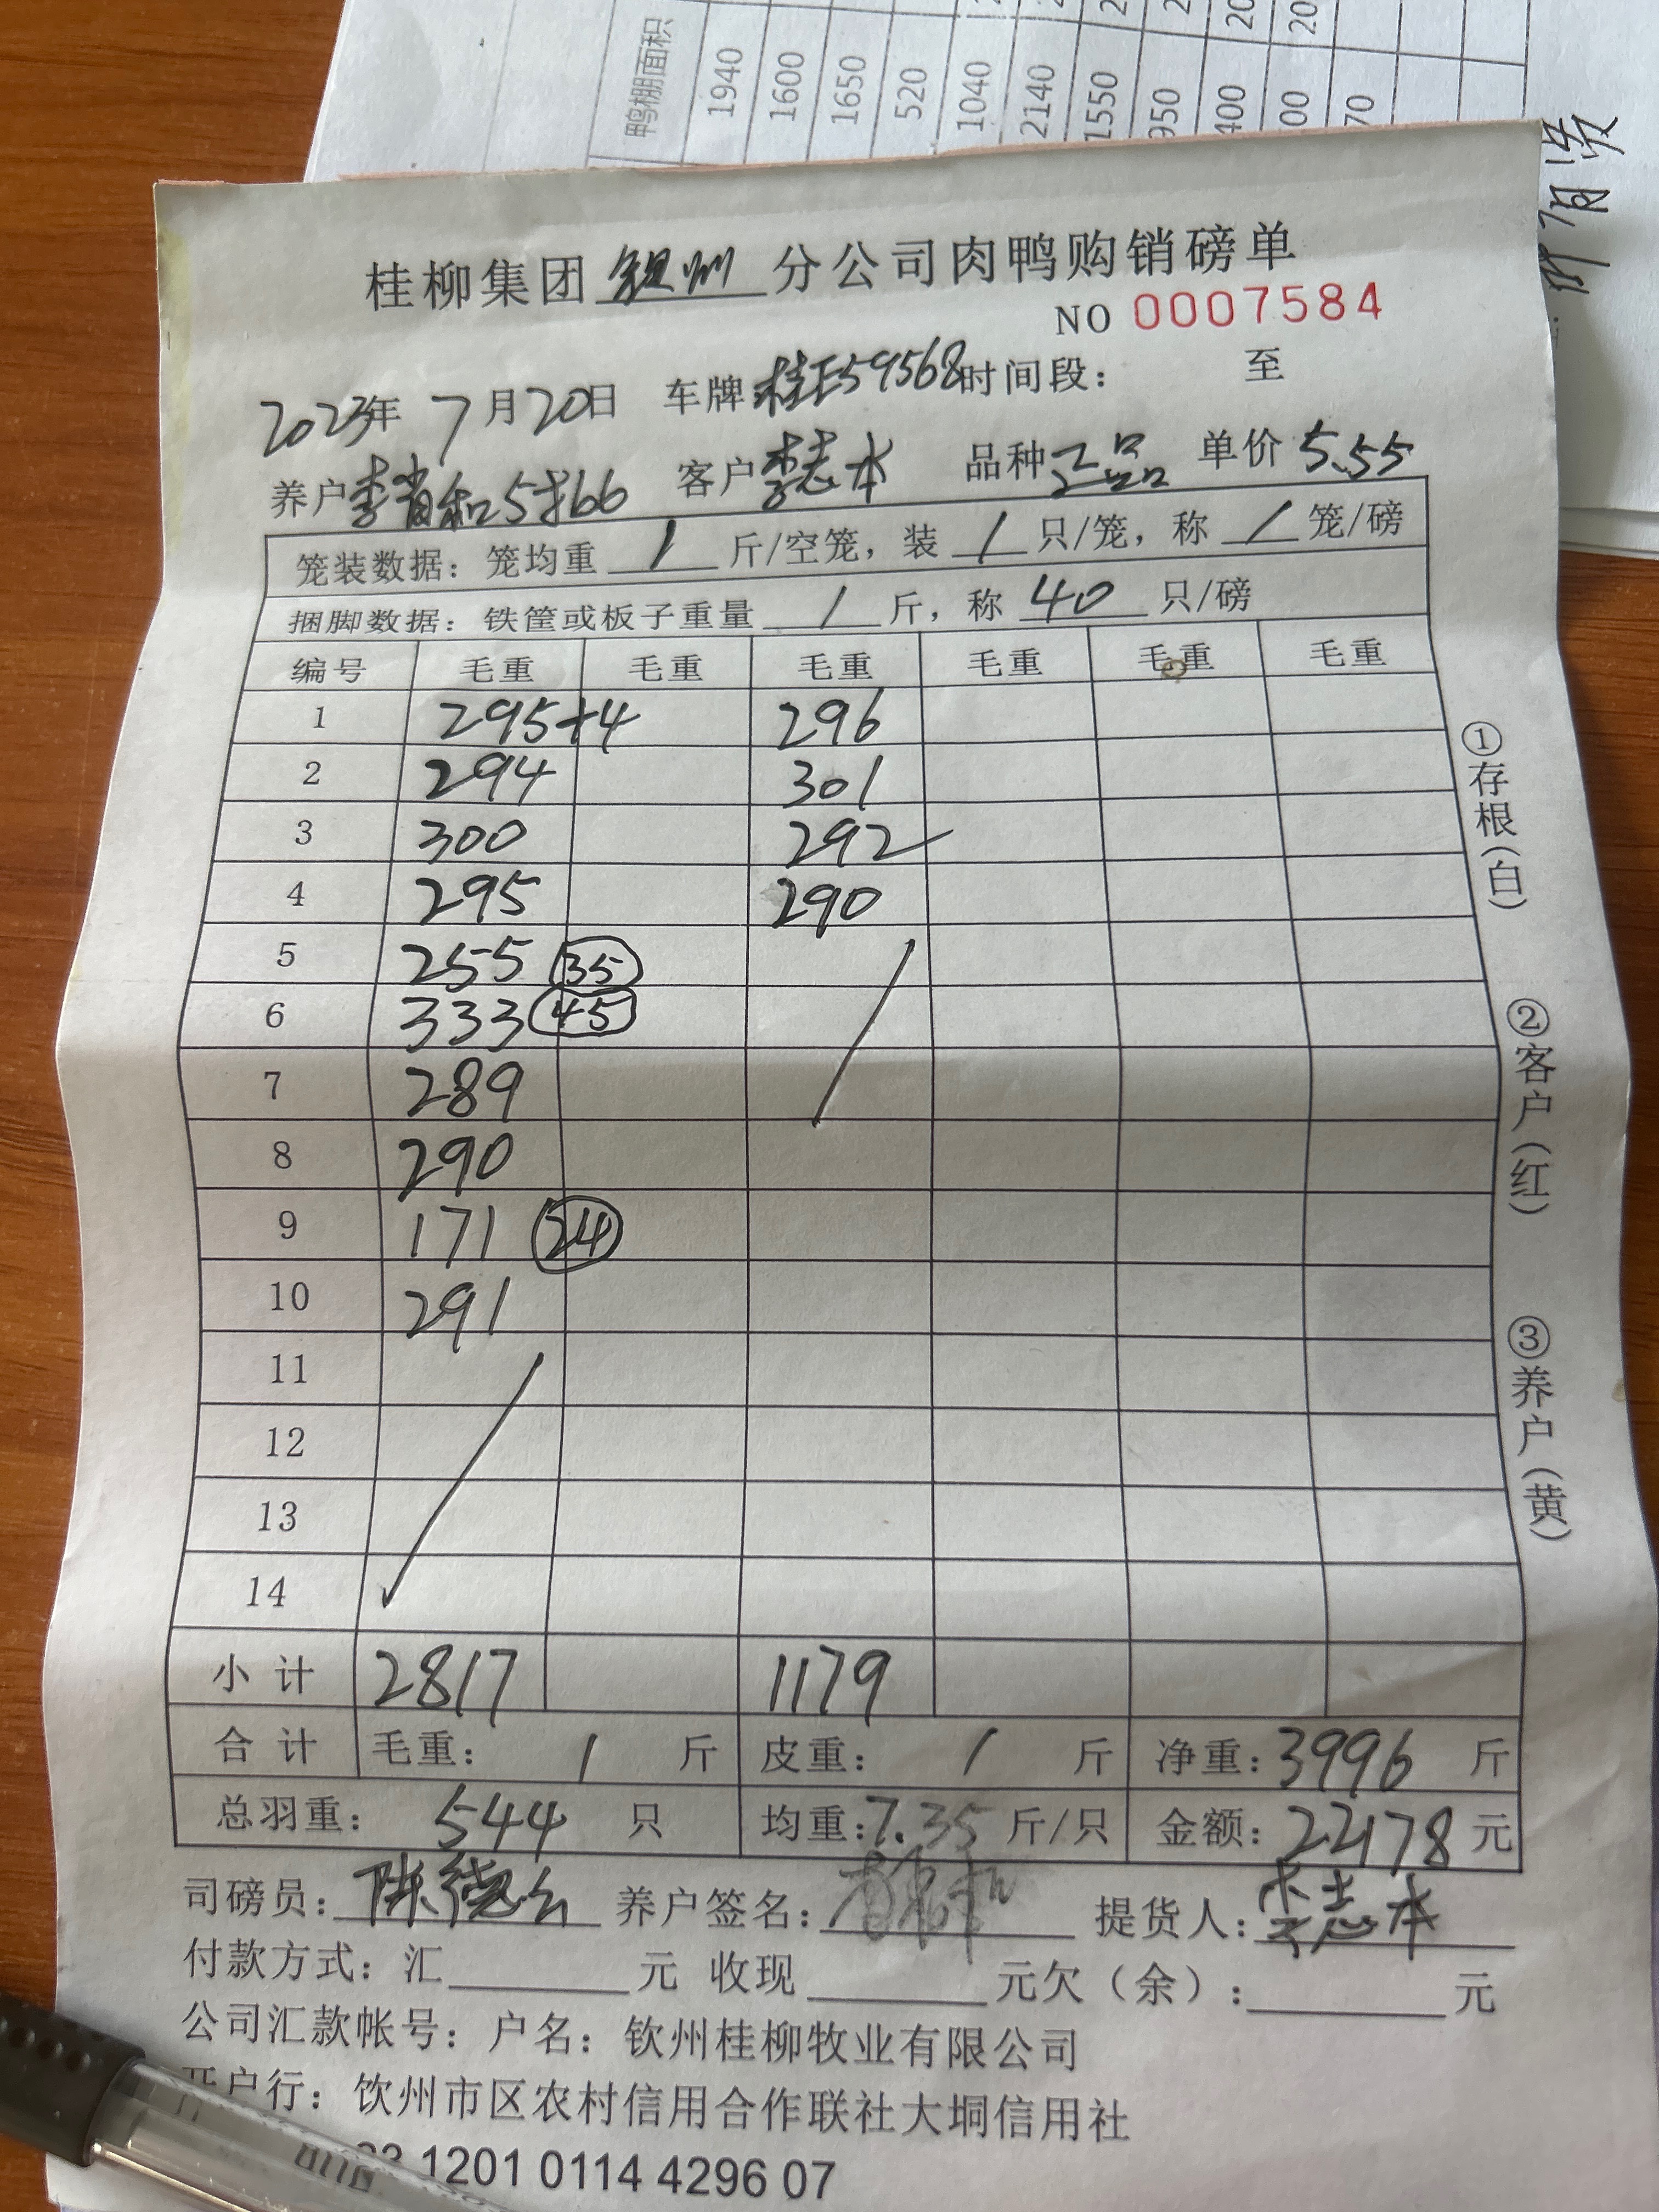 鸭棚面积
1940
1600
1650
520
1040
2140
1550
950
400
00
70
桂柳集团 钦州 分公司肉鸭购销磅单
NO 0007584
2023年 7月20日 车牌 桂E59568 时间段： 至
养户 李肖和5批66 客户 李志本 品种 正品 单价 5.55
笼装数据：笼均重 / 斤/空笼，装 / 只/笼，称 / 笼/磅
捆脚数据：铁筐或板子重量 / 斤，称 40 只/磅
编号 毛重 毛重 毛重 毛重 毛重 毛重
1 295+4 296
2 294 301
3 300 292
4 295 290
5 255 35
6 333 45
7 289
8 290
9 171 24
10 291
11
12
13
14
小计 2817 1179
合计 毛重： / 斤 皮重： / 斤 净重：3996 斤
总羽重： 544 只 均重：7.35 斤/只 金额：22178 元
司磅员： 养户签名： 提货人：李志本
付款方式：汇 元 收现 元欠（余）： 元
公司汇款帐号：户名：钦州桂柳牧业有限公司
开户行：饮州市区农村信用合作联社大垌信用社
1201 0114 4296 07
①存根（白）
②客户（红）
③养户（黄）